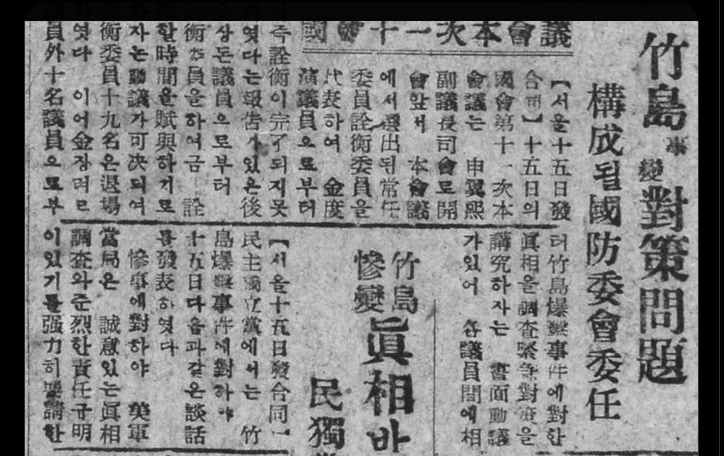 竹島事變對策問題
構成될國防委會委任
國會十一次本會議
【서울十五日發
合同】十五日의
國會第十一次本
會議는 申翼熙
副議長司會로開
會앞서 本會議
에서選出된常任
委員詮衡委員을
代表하여 金度
演議員으로부터
즉詮衡이完了되지못
엿다는報告가있은後
상돈議員으로부터
衡委員을하여금 詮
할時間을賦與하기로
자는動議가可決되여
衡委員十九名은退場
엿다 이어金장려
員外十名議員으로부
터竹島爆擊事件에對한
眞相을調査緊急對策을
講究하자는 書面動議
가있어 各議員間에相
竹島慘變
眞相바
民獨
【서울十五日發合同】
民主獨立黨에서는 竹
島爆擊事件에對하야
十五日다음과같은談話
를發表하엿다
慘事에對하야 美軍
當局은 誠意있는眞相
調査와준烈한責任규明
이있기를强力히要請한